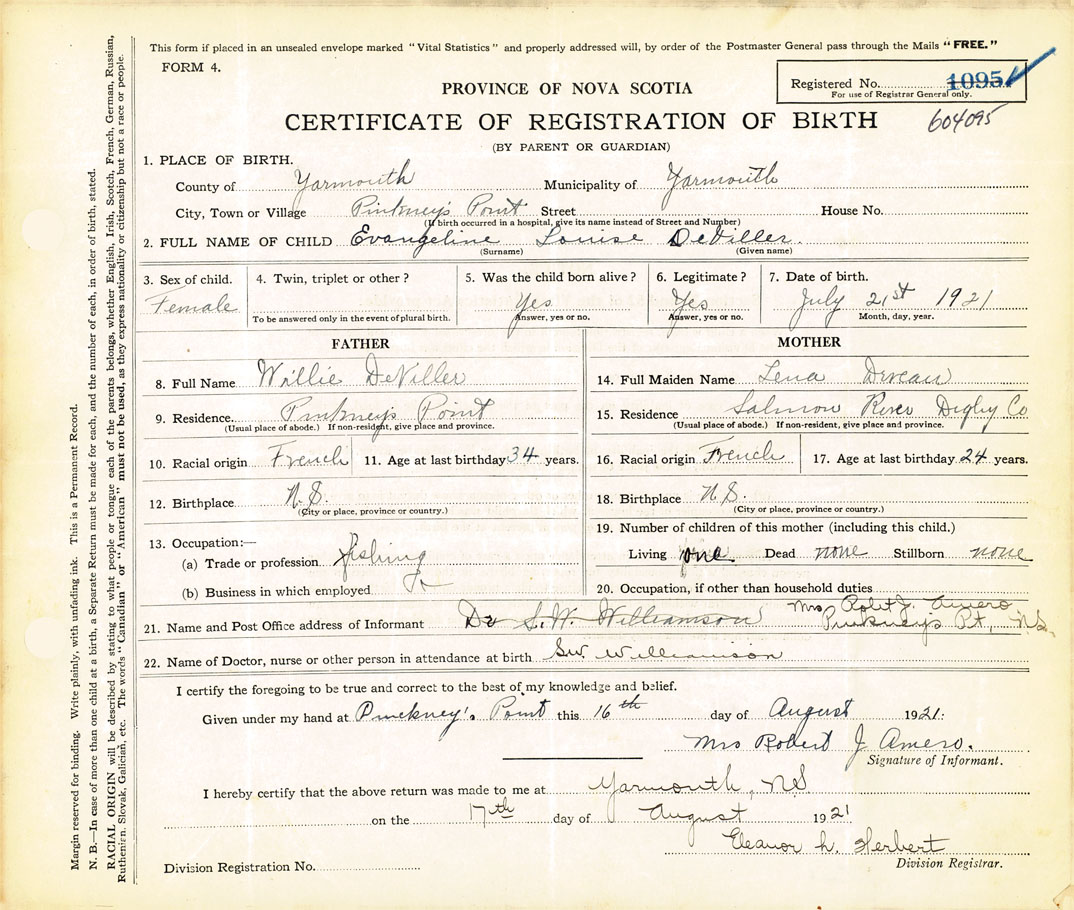 This form if placed in an unsealed envelope marked "Vital Statistics" and properly addressed will, by order of the Postmaster General pass through the Mails "FREE."
FORM 4.
Registered No. 1095
For use of Registrar General only.
604095
PROVINCE OF NOVA SCOTIA
CERTIFICATE OF REGISTRATION OF BIRTH
(BY PARENT OR GUARDIAN)
1. PLACE OF BIRTH.
County of Yarmouth Municipality of Yarmouth
City, Town or Village Pinkney's Point Street House No.
(If birth occurred in a hospital, give its name instead of Street and Number)
2. FULL NAME OF CHILD Evangeline Louise DeViller.
(Surname) (Given name)
3. Sex of child. Female
4. Twin, triplet or other?
To be answered only in the event of plural birth.
5. Was the child born alive? Yes
Answer, yes or no.
6. Legitimate? Yes
Answer, yes or no.
7. Date of birth. July 21st 1921
Month, day, year.
FATHER
8. Full Name Willie DeViller
9. Residence. Pinkney's Point
(Usual place of abode.) If non-resident, give place and province.
10. Racial origin French 11. Age at last birthday 34 years.
12. Birthplace N.S.
(City or place, province or country.)
13. Occupation:—
(a) Trade or profession fishing
(b) Business in which employed
MOTHER
14. Full Maiden Name Lena Deveau
15. Residence Salmon River Digby Co
(Usual place of abode.) If non-resident, give place and province.
16. Racial origin French 17. Age at last birthday 24 years.
18. Birthplace N.S.
(City or place, province or country.)
19. Number of children of this mother (including this child.)
Living one Dead none Stillborn none
20. Occupation, if other than household duties
21. Name and Post Office address of Informant Dr S.W. Williamson Mrs Robt J. Amero
Pinkney's Pt, N.S.
22. Name of Doctor, nurse or other person in attendance at birth S.W. Williamson
I certify the foregoing to be true and correct to the best of my knowledge and belief.
Given under my hand at Pinckney's Point this 16th day of August 1921.
Mrs Robert J Amero.
Signature of Informant.
I hereby certify that the above return was made to me at Yarmouth, NS
on the 17th day of August 1921
Eleanor L. Herbert
Division Registrar.
Division Registration No.
Margin reserved for binding. Write plainly, with unfading ink. This is a Permanent Record.
N. B.—In case of more than one child at a birth, a Separate Return must be made for each, and the number of each, in order of birth, stated.
RACIAL ORIGIN will be described by stating to what people or tongue each of the parents belongs, whether English, Irish, Scotch, French, German, Russian,
Ruthenian, Slovak, Galician, etc. The words "Canadian" or "American" must not be used, as they express nationality or citizenship but not a race or people.